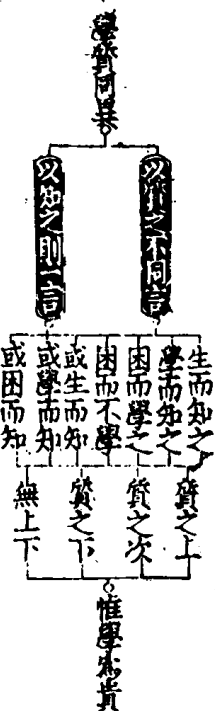 學質同異
以質之不同言
以知之則一言
生而知之
學而知之
困而學之
困而不學
或生而知
或學而知
或困而知
質之上
質之次
質之下
無上下
惟學為貴